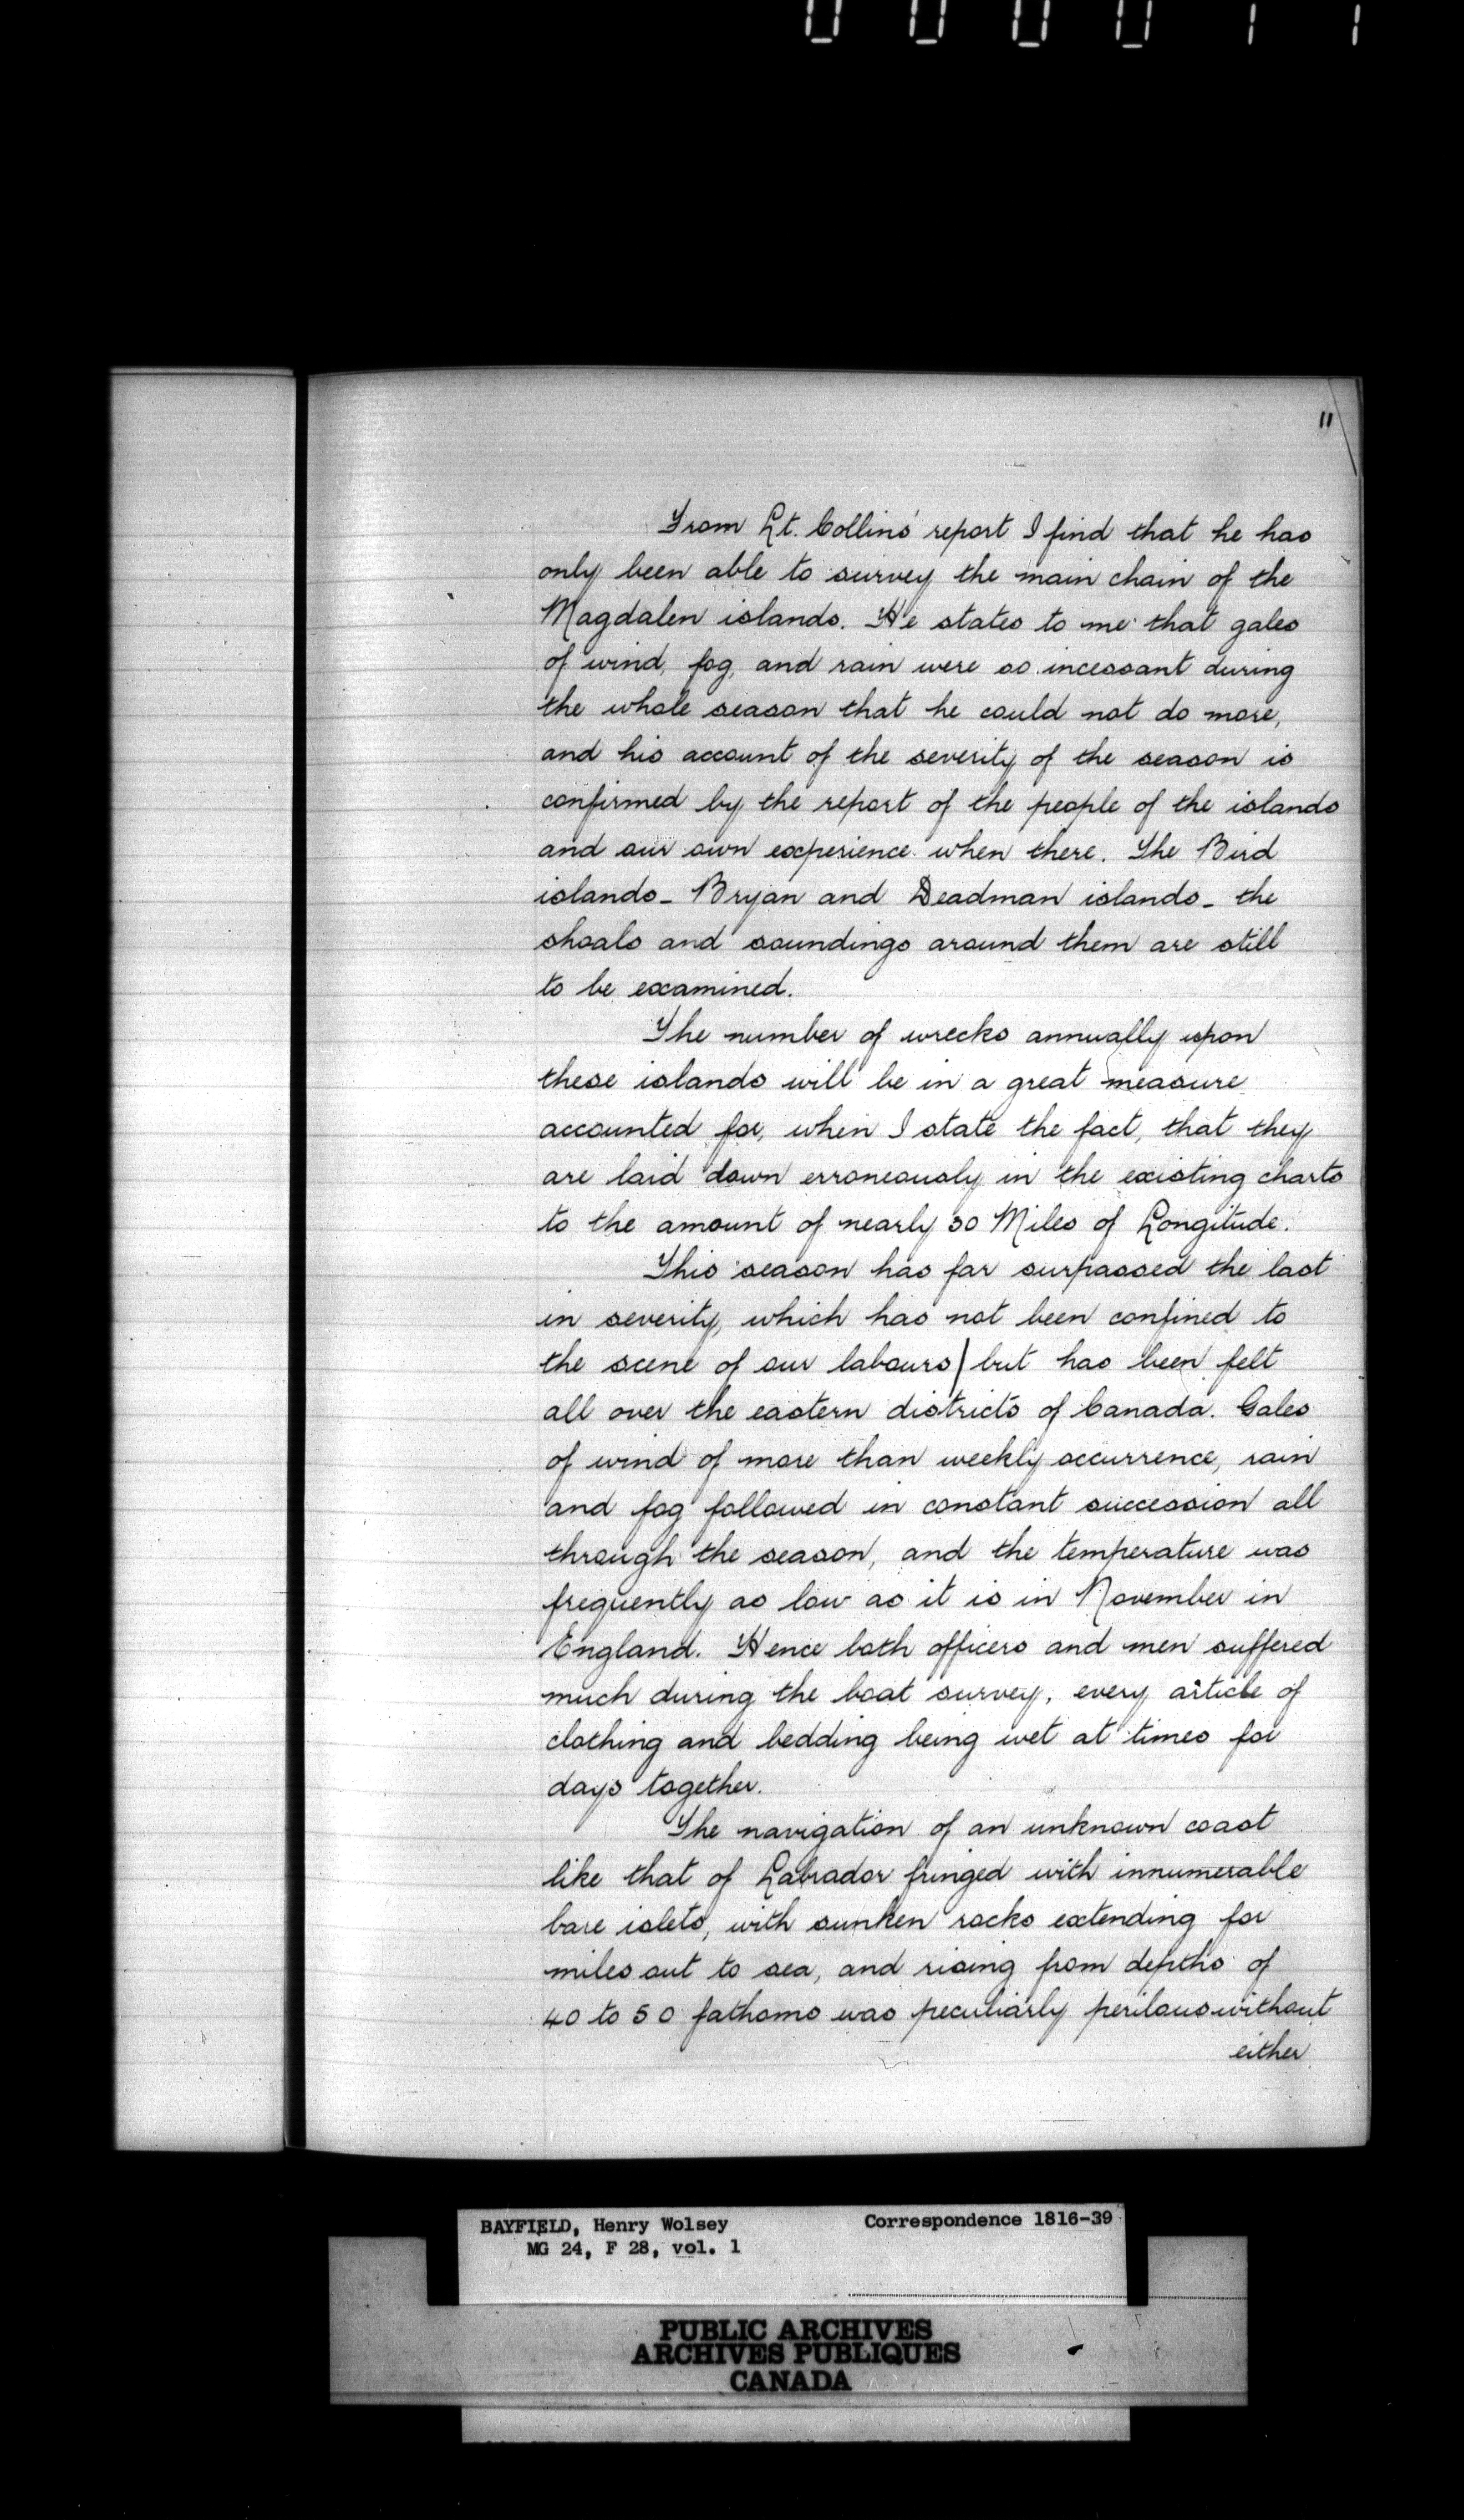 000011
11
From Lt. Collins' report I find that he has
only been able to survey the main chain of the
Magdalen islands. He states to me that gales
of wind, fog, and rain were so incessant during
the whole season that he could not do more,
and his account of the severity of the season is
confirmed by the report of the people of the islands
and our own experience when there. The Bird
islands_ Bryan and Deadman islands_ the
shoals and soundings around them are still
to be examined.
The number of wrecks annually upon
these islands will be in a great measure
accounted for, when I state the fact, that they
are laid down erroneously in the existing charts
to the amount of nearly 30 Miles of Longitude.
This season has far surpassed the last
in severity, which has not been confined to
the scene of our labours but has been felt
all over the eastern districts of Canada. Gales
of wind of more than weekly occurrence, rain
and fog followed in constant succession all
through the season, and the temperature was
frequently as low as it is in November in
England. Hence both officers and men suffered
much during the boat survey, every article of
clothing and bedding being wet at times for
days together.
The navigation of an unknown coast
like that of Labrador fringed with innumerable
bare islets, with sunken rocks extending for
miles out to sea, and rising from depths of
40 to 50 fathoms was peculiarly perilous without
either
BAYFIELD, Henry Wolsey Correspondence 1816-39
MG 24, F 28, vol. 1
PUBLIC ARCHIVES
ARCHIVES PUBLIQUES
CANADA